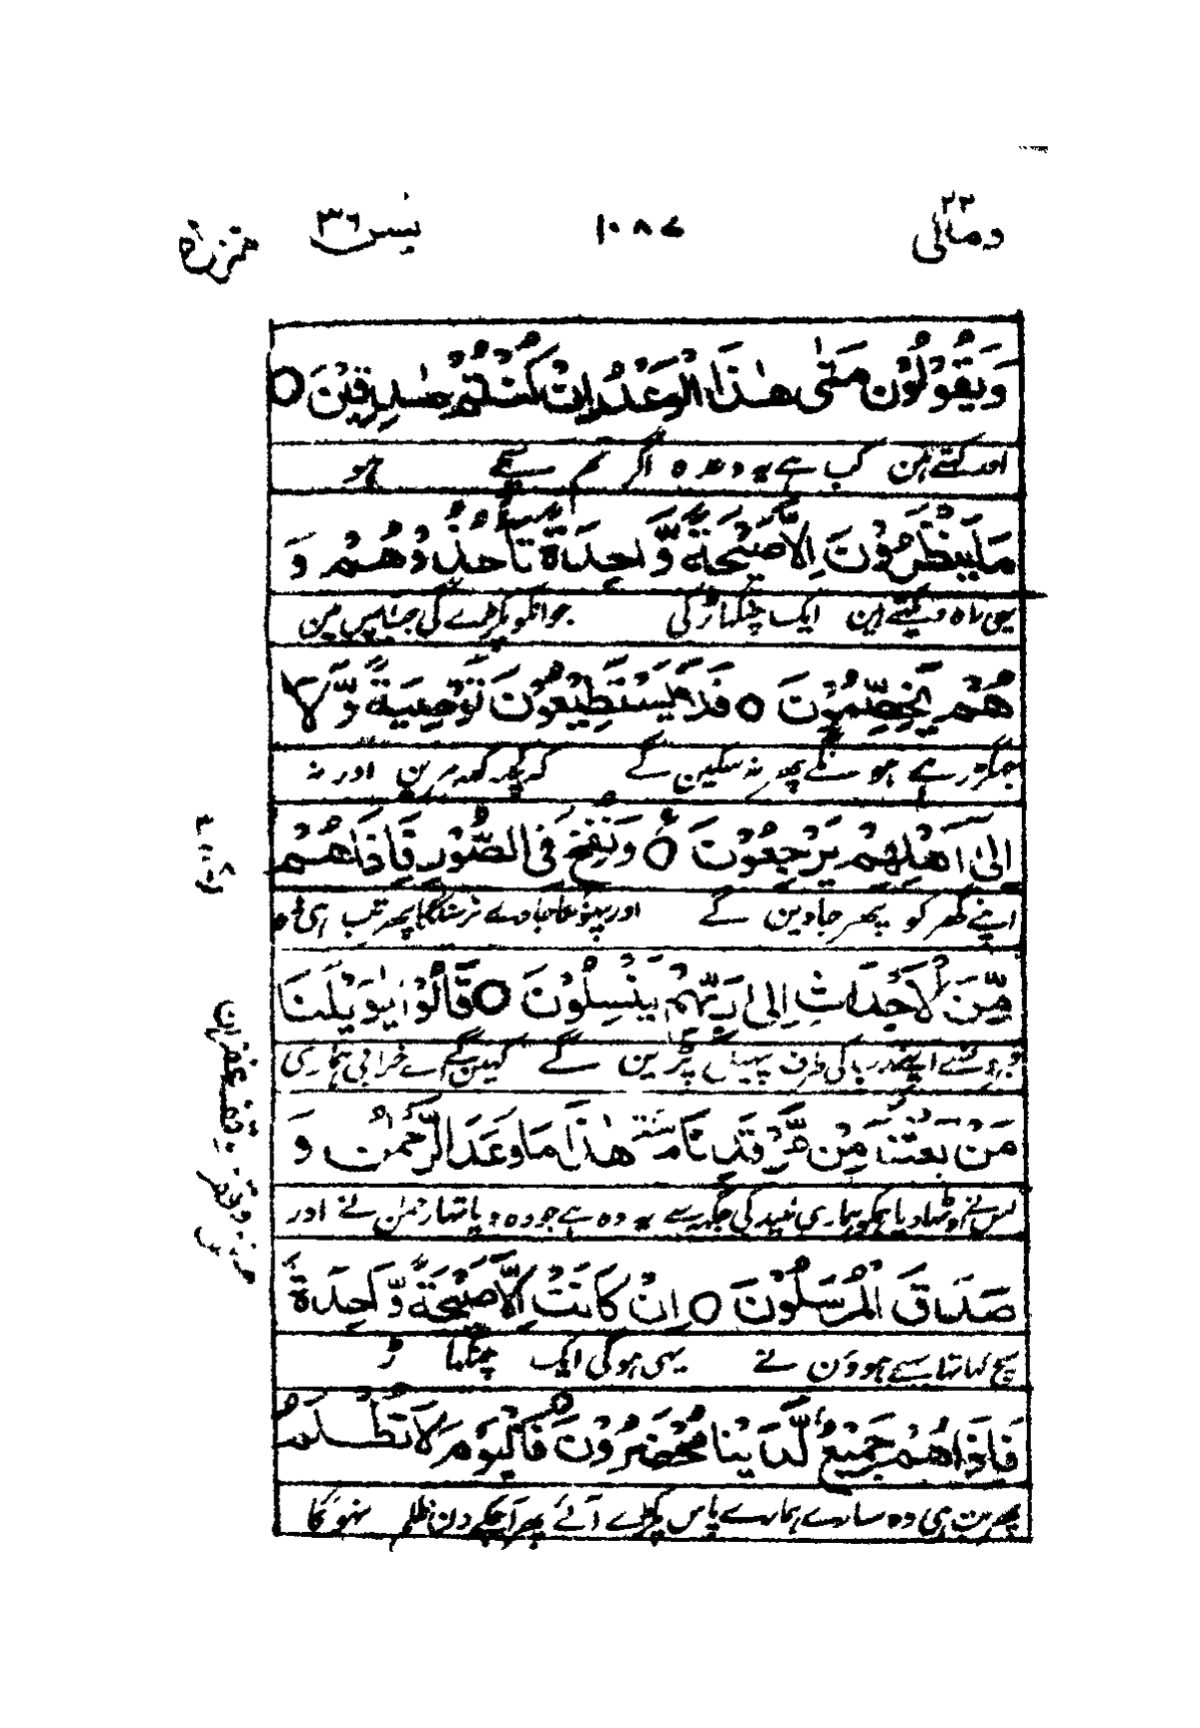 ومالی ٢٣ ١٠٨٧ یٰسٓ ٣٦
وَيَقُوْلُوْنَ مَتٰى هٰذَا الْوَعْدُ اِنْ كُنْتُمْ صٰدِقِيْنَ ○
اور کہتے ہین کب ہے یہ وعدہ اگر تم سچے ہو
مَا يَنْظُرُوْنَ اِلَّا صَيْحَةً وَّاحِدَةً تَأْخُذُهُمْ وَ
یہی راہ دیکھتے ہین ایک چنگھاڑ کی جو انکو پکڑے گی جب آپس مین
هُمْ يَخِصِّمُوْنَ ○ فَلَا يَسْتَطِيْعُوْنَ تَوْصِيَةً وَّلَا
جھگڑ رہے ہونگے پھر نہ سکین گے کہ کچھ کہہ مرین اور نہ
اِلٰى اَهْلِهِمْ يَرْجِعُوْنَ ○ وَنُفِخَ فِى الصُّوْرِ فَاِذَا هُمْ
اپنے گھر کو پھر جاوین گے اور پھونکا جاوے نرسنگا پھر تب ہی وہ
مِّنَ الْاَجْدَاثِ اِلٰى رَبِّهِمْ يَنْسِلُوْنَ ○ قَالُوْا يٰوَيْلَنَا
اپنے رب کی طرف پھیل پڑین گے کہین گے اے خرابی ہماری
مَنْۢ بَعَثَنَا مِنْ مَّرْقَدِنَا هٰذَا مَا وَعَدَ الرَّحْمٰنُ وَ
کس نے اوٹھا دیا ہمکو ہماری نیند کی جگہہ سے یہ وہ ہے جو وعدہ دیا تھا رحمٰن نے اور
صَدَقَ الْمُرْسَلُوْنَ ○ اِنْ كَانَتْ اِلَّا صَيْحَةً وَّاحِدَةً
سچ کہا تھا پیغمبرون نے یہی ہوگی ایک چنگھاڑ
فَاِذَا هُمْ جَمِيْعٌ لَّدَيْنَا مُحْضَرُوْنَ ○ فَالْيَوْمَ لَا تُظْلَمُ
پھر تب ہی وہ سارے ہمارے پاس پکڑے آئے پھر آج کے دن ظلم نہوگا